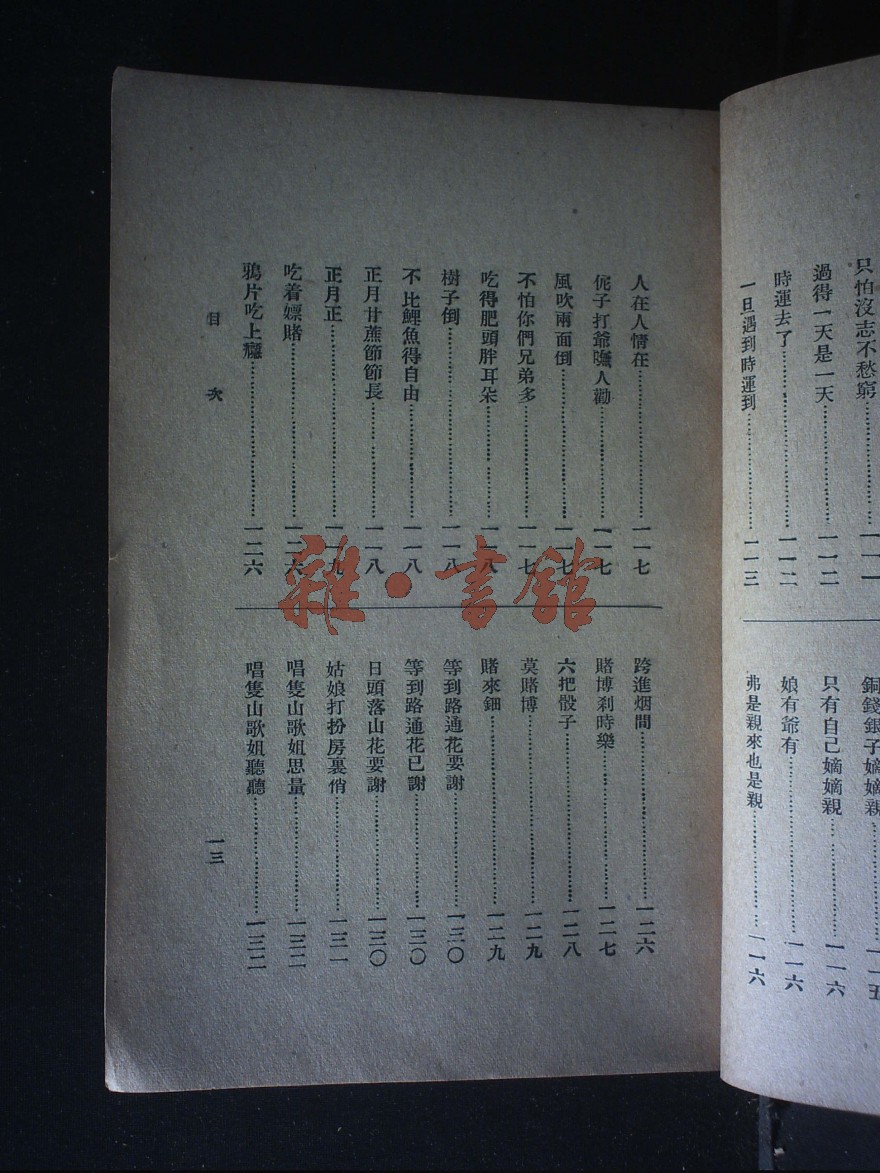 只怕沒志不愁窮……一一一
過得一天是一天……一一二
時運去了……一一二
一旦遇到時運到……一一三
銅錢銀子嫡嫡親……一一五
只有自己嫡嫡親……一一六
娘有爺有……一一六
弗是親來也是親……一一六
人在人情在……一一七
伲子打爺嘸人勸……一一七
風吹兩面倒……一一七
不怕你們兄弟多……一一七
吃得肥頭胖耳朵……一一八
樹子倒……一一八
不比鯉魚得自由……一一八
正月甘蔗節節長……一一八
正月正……一一九
吃着嫖賭……一二六
鴉片吃上癮……一二六
跨進烟間……一二六
賭博刹時樂……一二七
六把骰子……一二八
莫賭博……一二九
賭來鈿……一二九
等到路通花要謝……一三〇
等到路通花已謝……一三〇
日頭落山花要謝……一三〇
姑娘打扮房裏俏……一三一
唱隻山歌姐思量……一三二
唱隻山歌姐聽聽……一三二
目次
一三
雜·書館